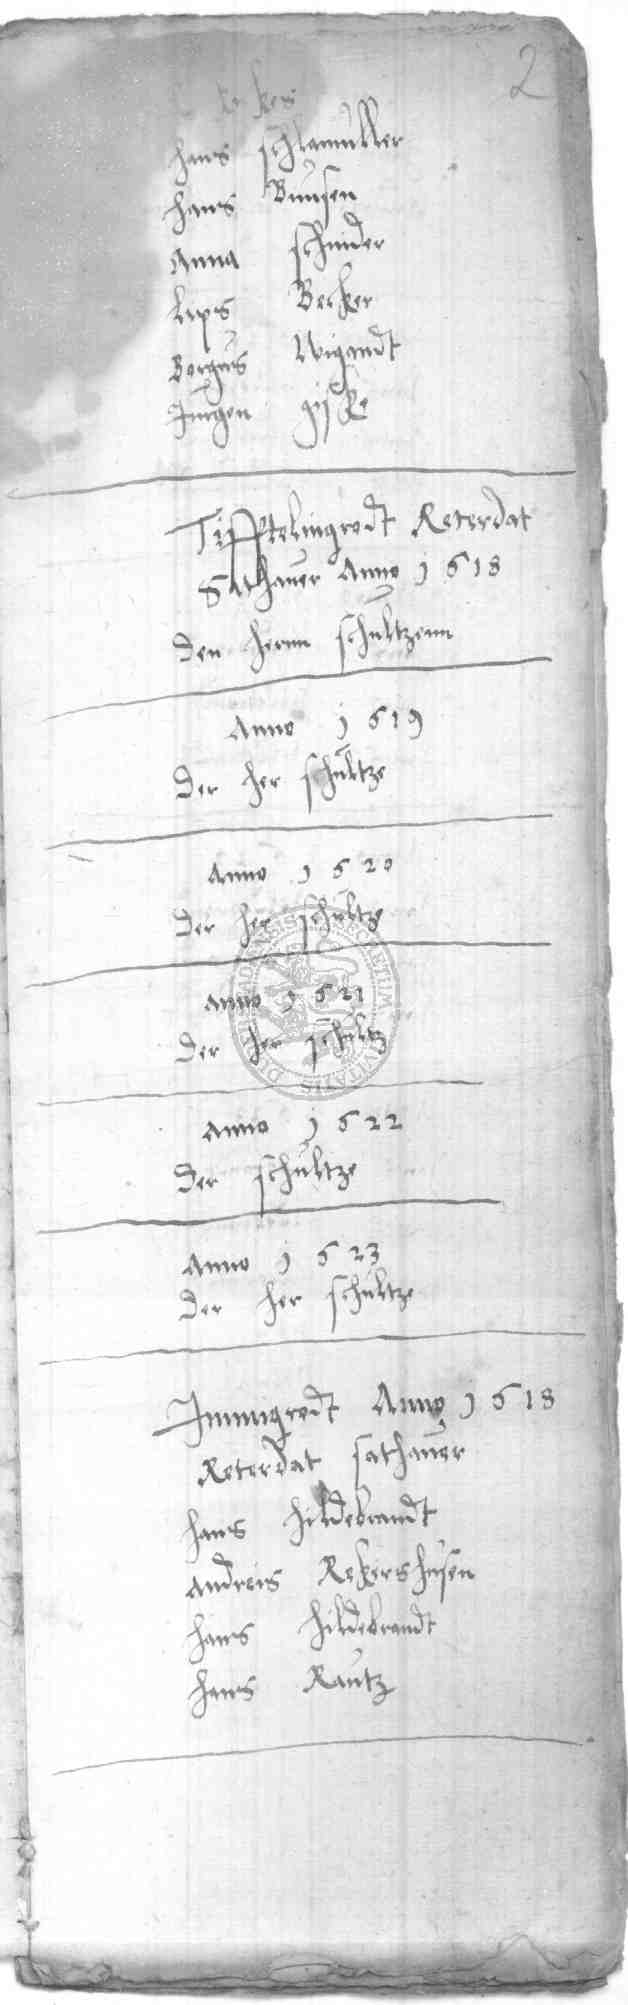 2
Hans Schlamüller
Hans Bünsen
Anna Schnider
Lips Becker
Borgus Wigandt
Jürgen
Tipptelingrodt Reterdat
Sathauer Anno 1618
den hernn Schultzenn
Anno 1619
der her Schultze
Anno 1620
der her Schultze
Anno 1621
der her Schultz
Anno 1622
der Schultze
Anno 1623
der her Schultze
Immigrodt Anno 1618
Reterdat sathauer
Hans Hildebrandt
Andreis Rekershusen
Hans Hildebrandt
Hans Rautz